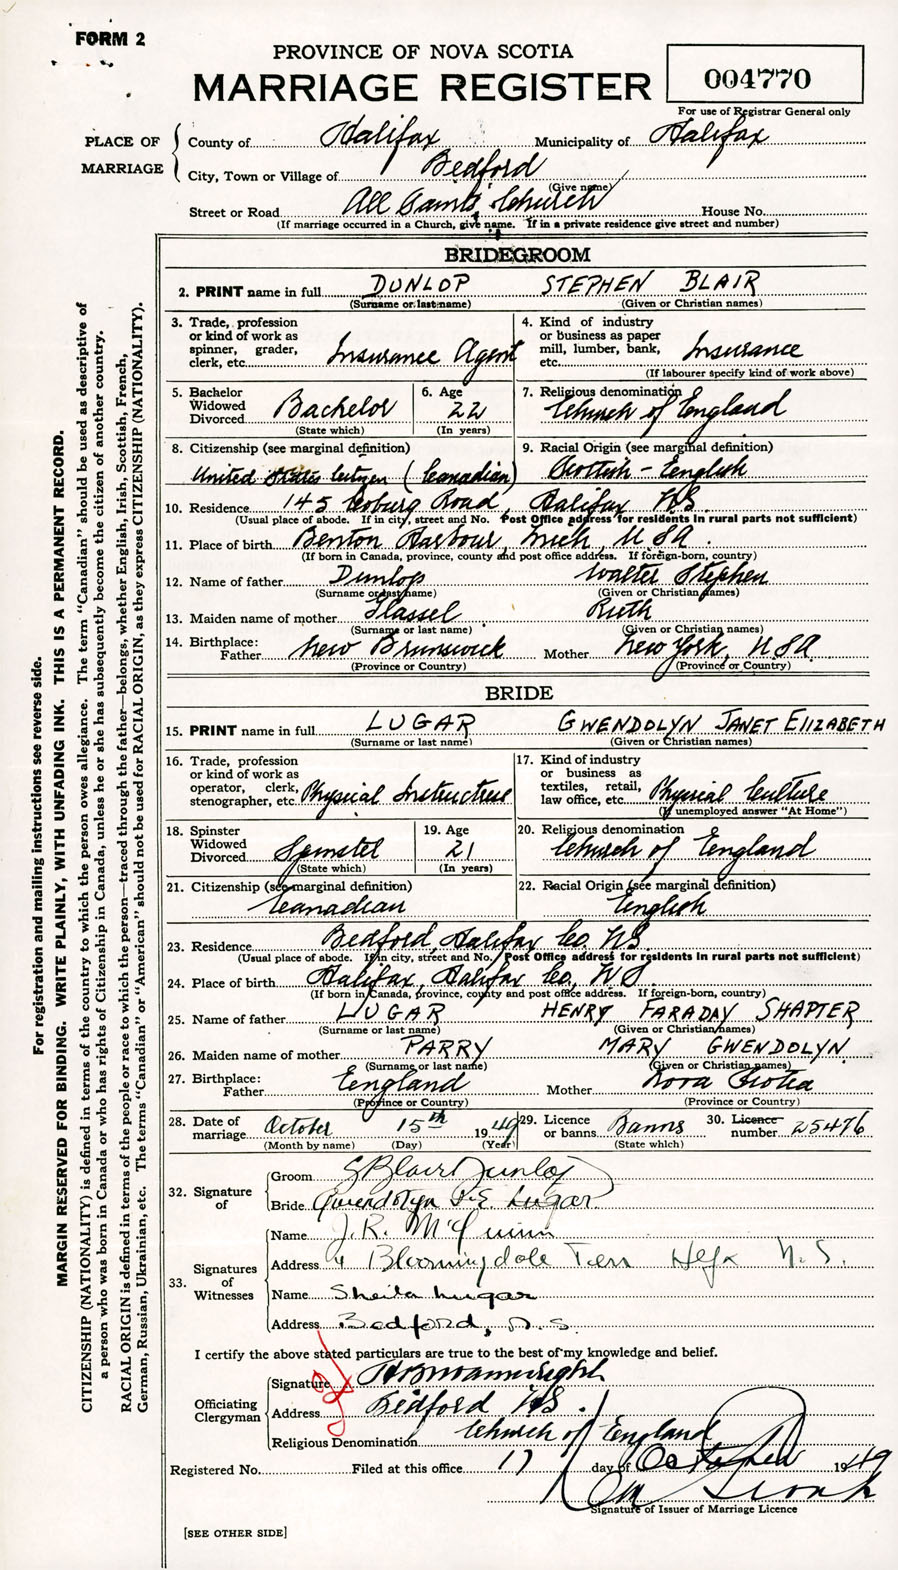 FORM 2
PROVINCE OF NOVA SCOTIA
MARRIAGE REGISTER
004770
For use of Registrar General only
PLACE OF MARRIAGE
County of Halifax Municipality of Halifax
City, Town or Village of Bedford
(Give name)
Street or Road All Saints Church House No.
(If marriage occurred in a Church, give name. If in a private residence give street and number)
BRIDEGROOM
2. PRINT name in full DUNLOP STEPHEN BLAIR
(Surname or last name) (Given or Christian names)
3. Trade, profession or kind of work as spinner, grader, clerk, etc. Insurance Agent
4. Kind of industry or business as paper mill, lumber, bank, etc. Insurance
(If labourer specify kind of work above)
5. Bachelor Widowed Divorced Bachelor
(State which)
6. Age 22
(In years)
7. Religious denomination Church of England
8. Citizenship (see marginal definition)
United States Citizen (Canadian)
9. Racial Origin (see marginal definition)
Scottish - English
10. Residence 145 Coburg Road, Halifax NS.
(Usual place of abode. If in city, street and No. Post Office address for residents in rural parts not sufficient)
11. Place of birth Benton Harbour, Mich, USA.
(If born in Canada, province, county and post office address. If foreign-born, country)
12. Name of father Dunlop Walter Stephen
(Surname or last name) (Given or Christian names)
13. Maiden name of mother Ruth
(Surname or last name) (Given or Christian names)
14. Birthplace: Father New Brunswick Mother New York, USA
(Province or Country) (Province or Country)
BRIDE
15. PRINT name in full LUGAR GWENDOLYN JANET ElIZABETH
(Surname or last name) (Given or Christian names)
16. Trade, profession or kind of work as operator, clerk, stenographer, etc. Physical Instructress
17. Kind of industry or business as textiles, retail, law office, etc. Physical Culture
(If unemployed answer "At Home")
18. Spinster Widowed Divorced Spinster
(State which)
19. Age 21
(In years)
20. Religious denomination Church of England
21. Citizenship (see marginal definition)
Canadian
22. Racial Origin (see marginal definition)
English
23. Residence Bedford, Halifax Co. NS.
(Usual place of abode. If in city, street and No. Post Office address for residents in rural parts not sufficient)
24. Place of birth Halifax, Halifax Co, NS
(If born in Canada, province, county and post office address. If foreign-born, country)
25. Name of father LUGAR HENRY FARADAY SHAPTER
(Surname or last name) (Given or Christian names)
26. Maiden name of mother PARRY MARY GWENDOLYN
(Surname or last name) (Given or Christian names)
27. Birthplace: Father England Mother Nova Scotia
(Province or Country) (Province or Country)
28. Date of marriage October 15th 1949
(Month by name) (Day) (Year)
29. Licence or banns Banns
(State which)
30. Licence number 25476
32. Signature of
Groom S Blair Dunlop
Bride Gwendolyn J.E. Lugar
33. Signatures of Witnesses
Name J. R. McQuinn
Address 4 Bloomingdale Terr Hfx N.S.
Name Sheila Lugar
Address Bedford, N.S.
I certify the above stated particulars are true to the best of my knowledge and belief.
Officiating Clergyman
Signature
Address Bedford NS.
Religious Denomination Church of England
Registered No. Filed at this office 17 day of October 1949
Signature of Issuer of Marriage Licence
[SEE OTHER SIDE]
For registration and mailing instructions see reverse side.
MARGIN RESERVED FOR BINDING. WRITE PLAINLY, WITH UNFADING INK. THIS IS A PERMANENT RECORD.
CITIZENSHIP (NATIONALITY) is defined in terms of the country to which the person owes allegiance. The term "Canadian" should be used as descriptive of
a person who was born in Canada or who has rights of Citizenship in Canada, unless he or she has subsequently become the citizen of another country.
RACIAL ORIGIN is defined in terms of the people or race to which the person—traced through the father—belongs, whether English, Irish, Scottish, French,
German, Russian, Ukrainian, etc. The terms "Canadian" or "American" should not be used for RACIAL ORIGIN, as they express CITIZENSHIP (NATIONALITY).